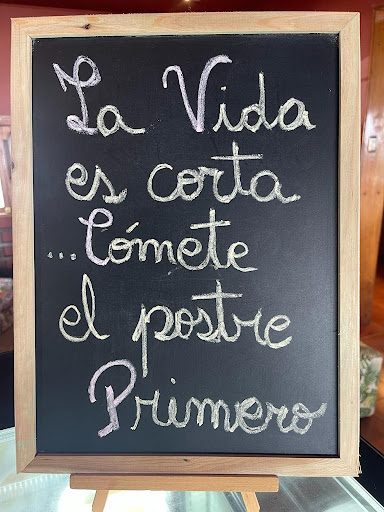 La Vida
es corta
...Cómete
el postre
Primero